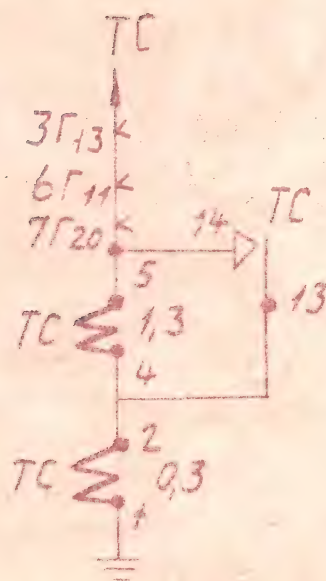 ТС
3Г13
6Г11
7Г20
14
ТС
5
13
ТС
1,3
4
2
ТС
0,3
1